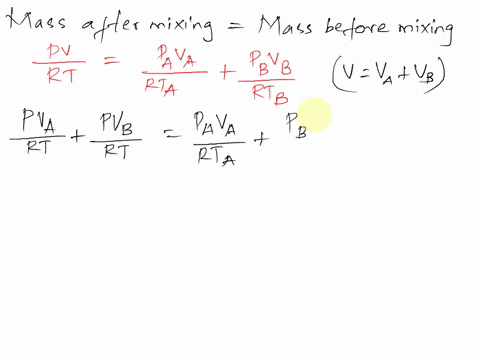 Mass after mixing = Mass before mixing
PV/RT = P_A V_A/RT_A + P_B V_B/RT_B (V = V_A + V_B)
PV_A/RT + PV_B/RT = P_A V_A/RT_A + P_B